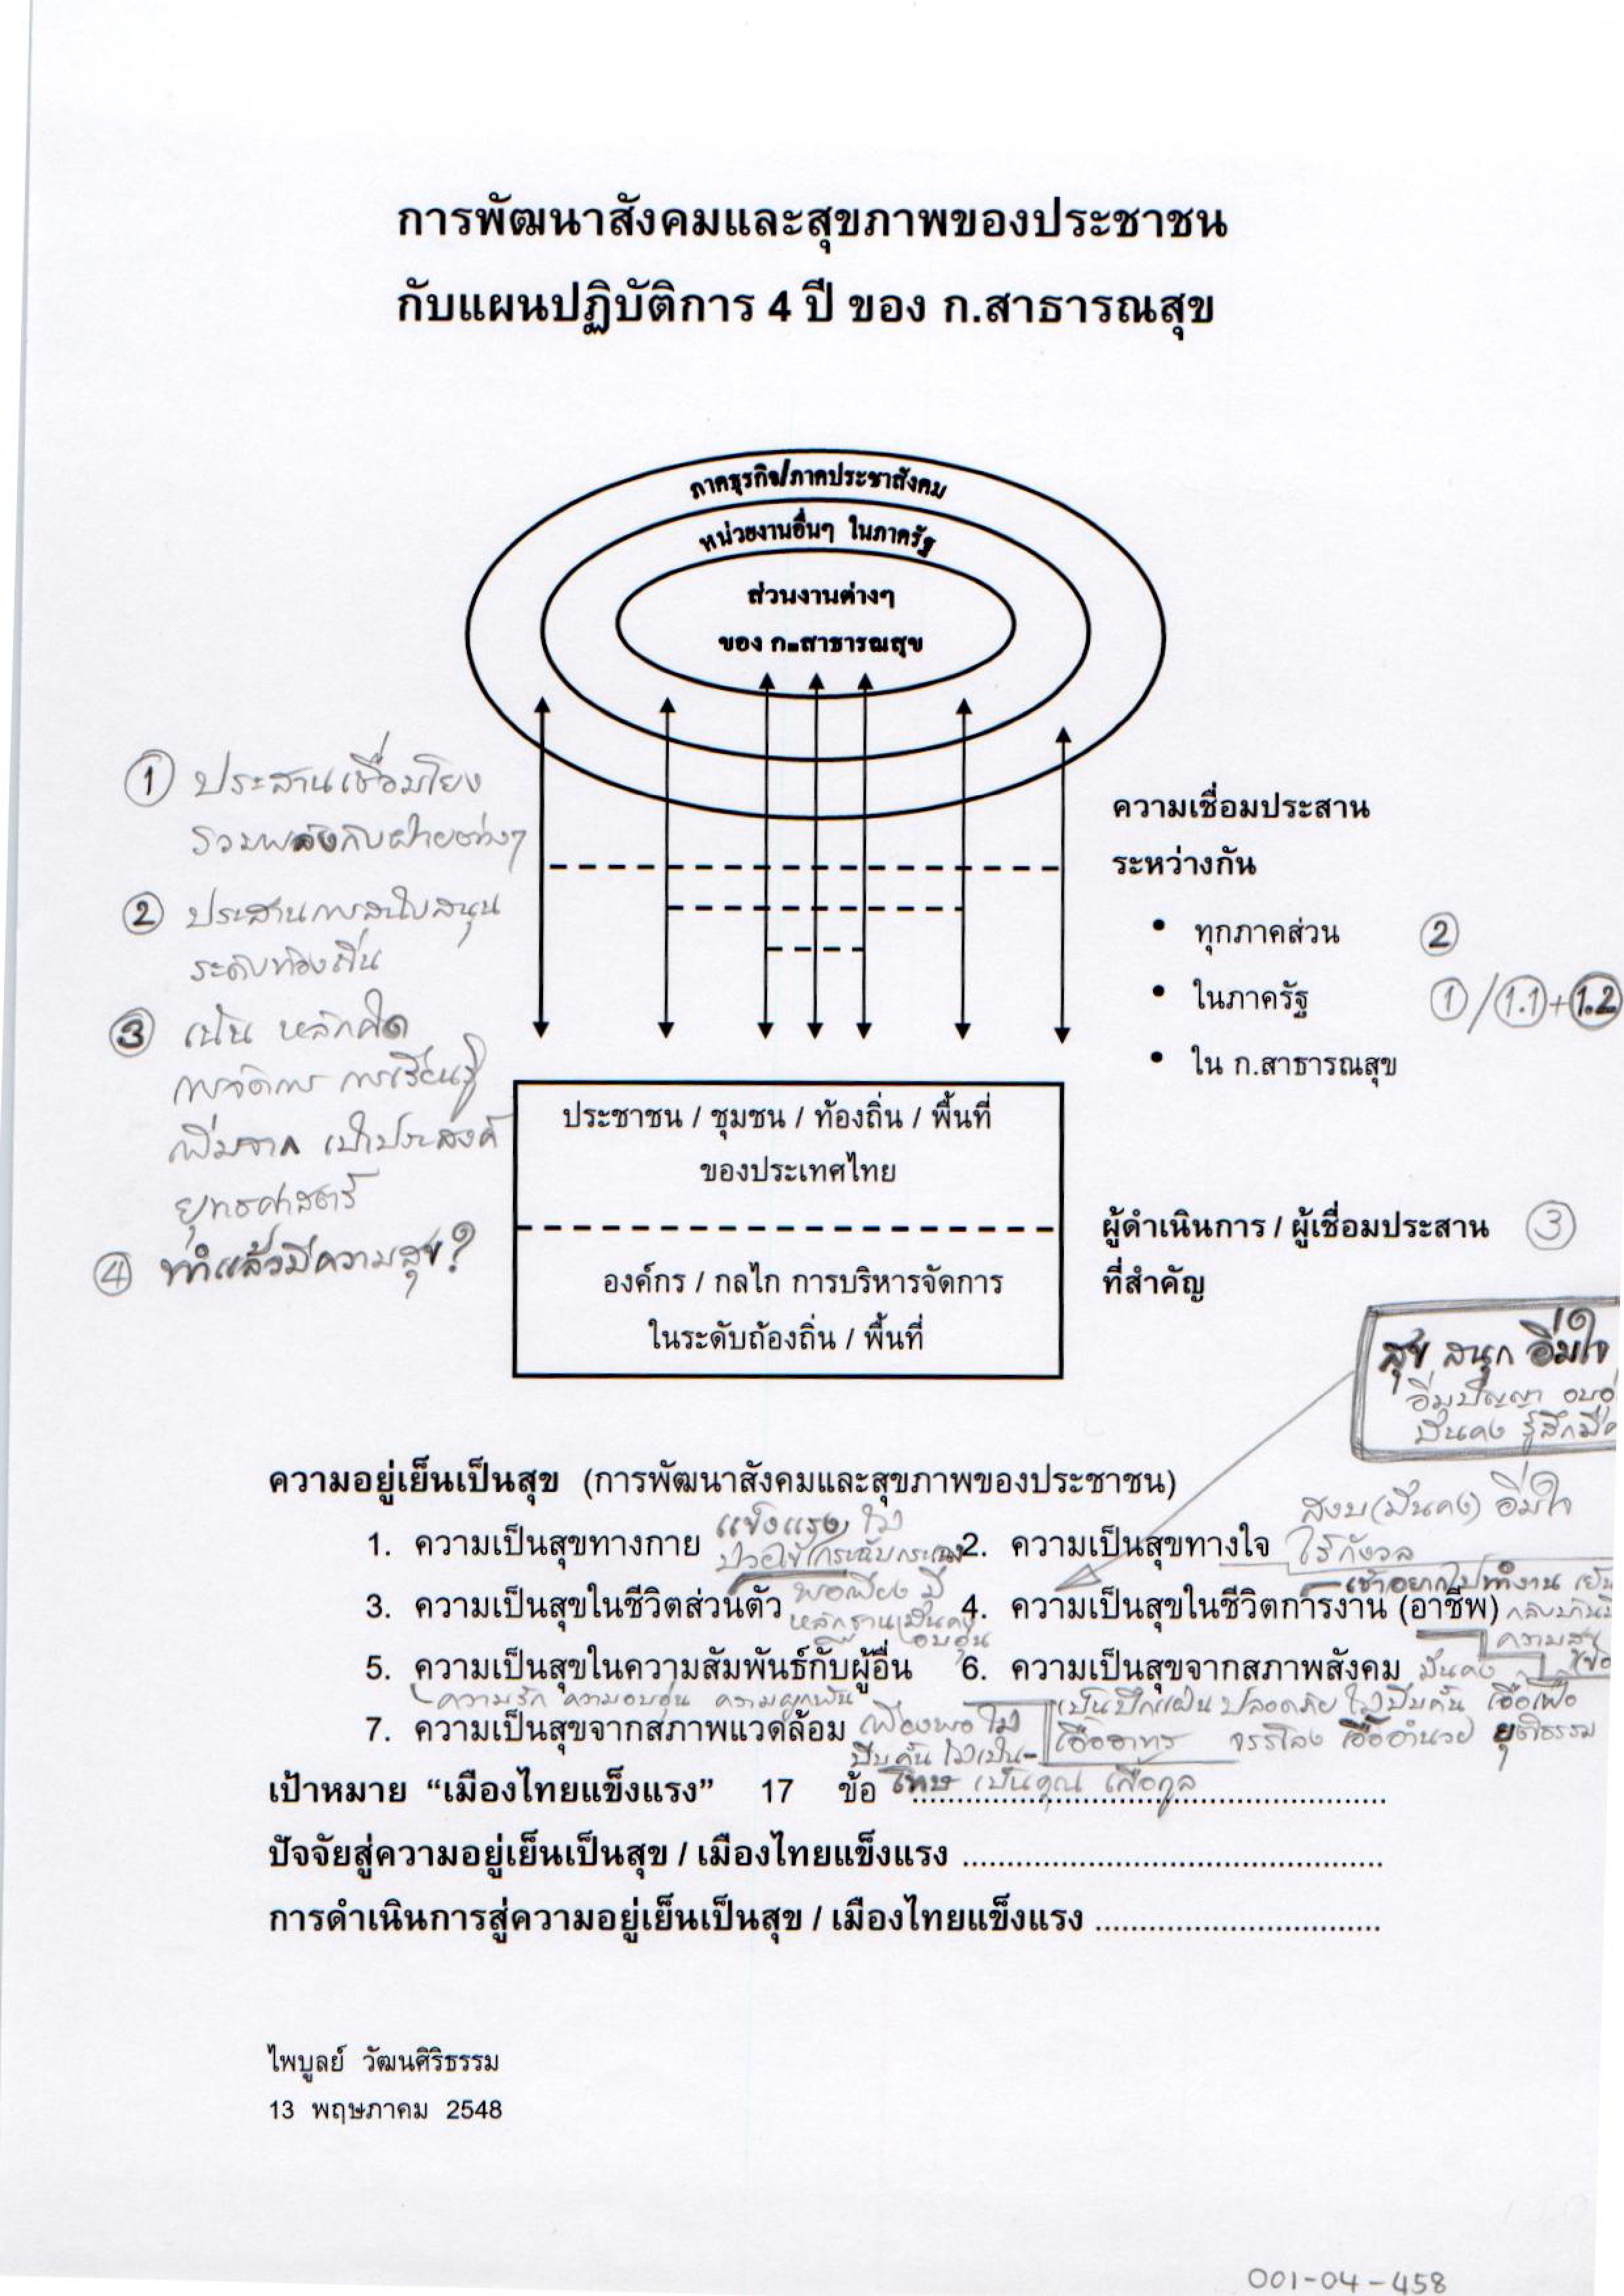 การพัฒนาสังคมและสุขภาพของประชาชน
กับแผนปฏิบัติการ 4 ปี ของ ก.สาธารณสุข
ภาคธุรกิจ/ภาคประชาสังคม
หน่วยงานอื่นๆ ในภาครัฐ
ส่วนงานต่างๆ
ของ ก.สาธารณสุข
① ประสานเชื่อมโยง
รวมพลังกับฝ่ายต่างๆ
② ประสานการสนับสนุน
ระดับท้องถิ่น
③ เน้น หลักคิด
การจัดการ การเรียนรู้
เพิ่มจาก เป้าประสงค์
ยุทธศาสตร์
④ ทำแล้วมีความสุข?
ความเชื่อมประสาน
ระหว่างกัน
• ทุกภาคส่วน ②
• ในภาครัฐ ①/1.1+1.2
• ใน ก.สาธารณสุข
ประชาชน / ชุมชน / ท้องถิ่น / พื้นที่
ของประเทศไทย
องค์กร / กลไก การบริหารจัดการ
ในระดับถ้องถิ่น / พื้นที่
ผู้ดำเนินการ / ผู้เชื่อมประสาน ③
ที่สำคัญ
สุข สนุก อิ่มใจ
อิ่มปัญญา
มั่นคง รู้สึกมี
ความอยู่เย็นเป็นสุข (การพัฒนาสังคมและสุขภาพของประชาชน)
สงบ(มั่นคง) อิ่มใจ
ไร้กังวล
แข็งแรง ไม่
ป่วยไข้ กระฉับกระเฉง
1. ความเป็นสุขทางกาย 2. ความเป็นสุขทางใจ
พอเพียง มี
หลักฐานมั่นคง
อบอุ่น
เช้าอยากไปทำงาน เย็น
3. ความเป็นสุขในชีวิตส่วนตัว 4. ความเป็นสุขในชีวิตการงาน (อาชีพ)
ความสุข
5. ความเป็นสุขในความสัมพันธ์กับผู้อื่น 6. ความเป็นสุขจากสภาพสังคม มั่นคง
ความรัก ความอบอุ่น ความผูกพัน
เป็นปึกแผ่น ปลอดภัย ไม่บีบคั้น เอื้อเฟื้อ
เอื้ออาทร จรรโลง เอื้ออำนวย ยุติธรรม
7. ความเป็นสุขจากสภาพแวดล้อม เพียงพอ ไม่
บีบคั้น ไม่เป็น
โทษ เป็นคุณ เกื้อกูล
เป้าหมาย “เมืองไทยแข็งแรง” 17 ข้อ ........................................
ปัจจัยสู่ความอยู่เย็นเป็นสุข / เมืองไทยแข็งแรง ........................................
การดำเนินการสู่ความอยู่เย็นเป็นสุข / เมืองไทยแข็งแรง ..............................
ไพบูลย์ วัฒนศิริธรรม
13 พฤษภาคม 2548
001-04-458